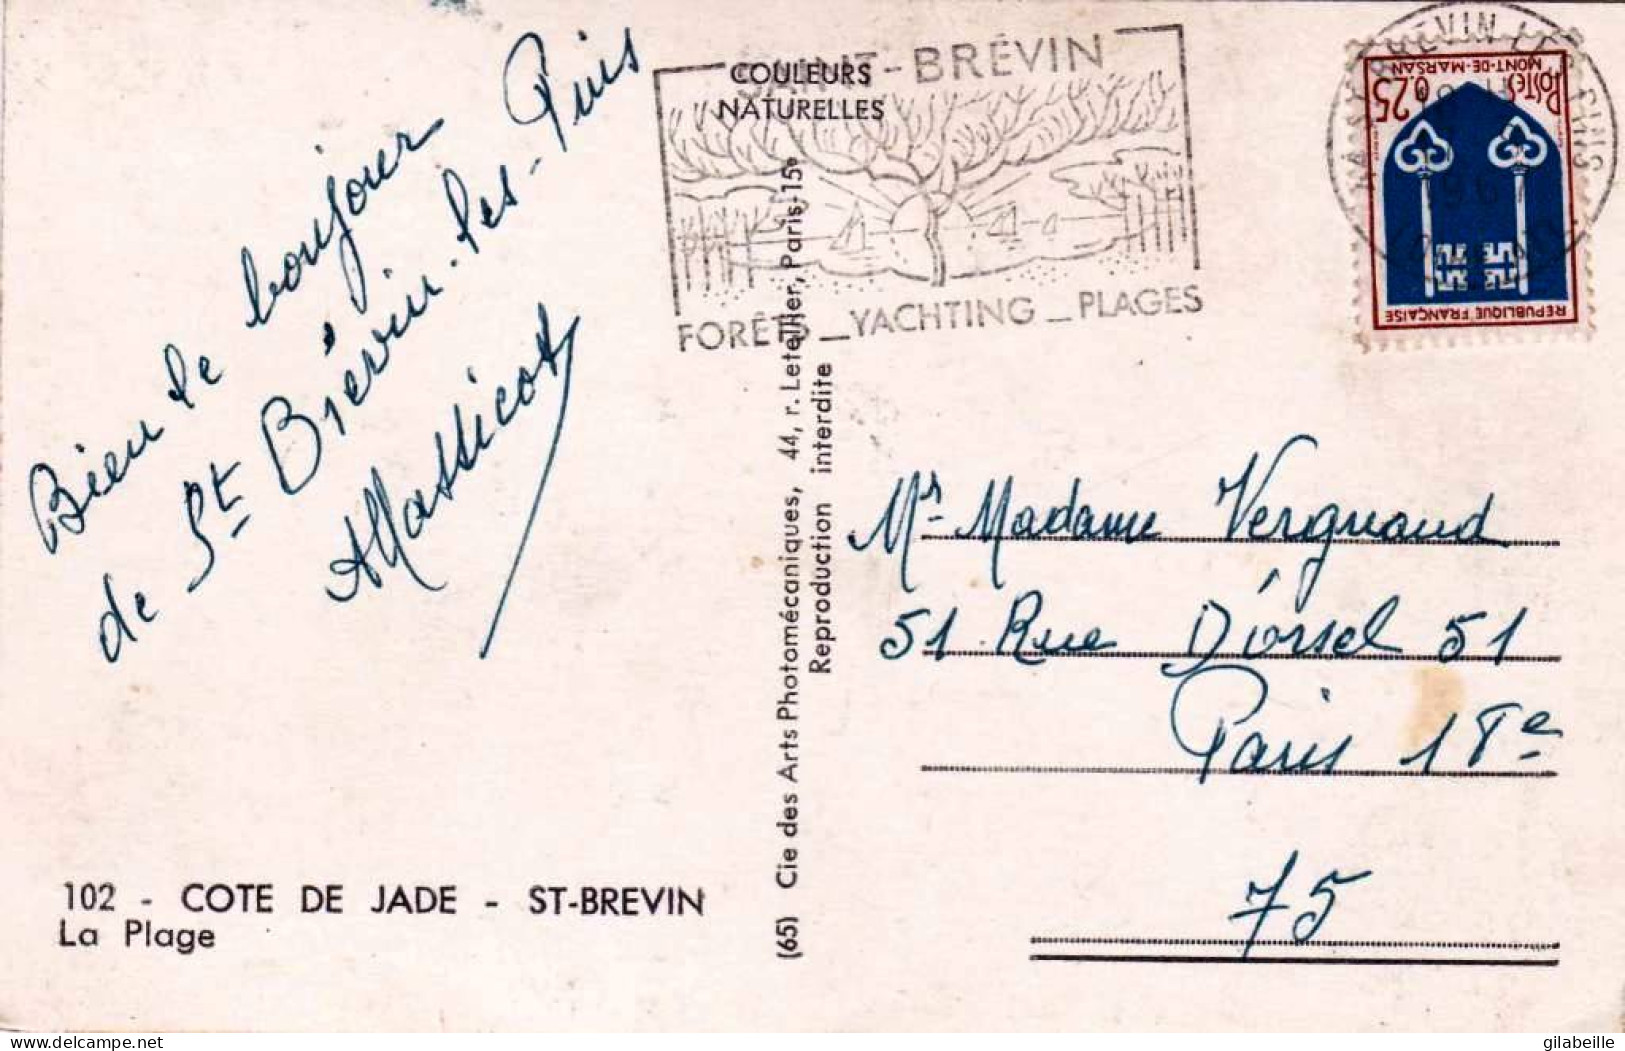 Bien le bonjour
de St Brévin-les-Pins
AMassicot
102 - COTE DE JADE - ST-BREVIN
La Plage
COULEURS
NATURELLES
SAINT-BRÉVIN
FORÊTS _ YACHTING _ PLAGES
(65) Cie des Arts Photomécaniques, 44, r. Letellier, Paris-15e
Reproduction interdite
BREVIN LES PINS
POSTES
0,25
MONT-DE-MARSAN
REPUBLIQUE FRANÇAISE
Mr Madame Vergnaud
51 Rue D'orsel 51
Paris 18e
75
gilabeille